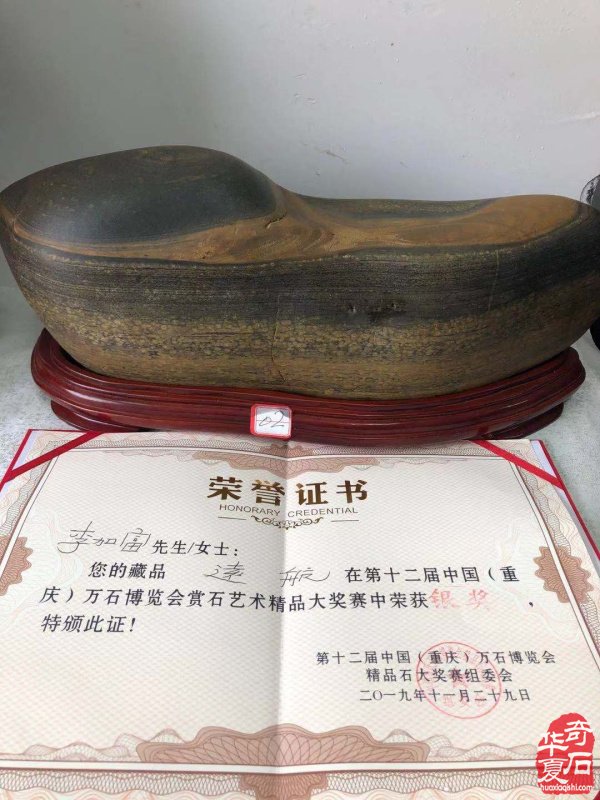 02
荣誉证书
HONORARY CREDENTIAL
李加富先生/女士：
您的藏品 远航 在第十二届中国（重
庆）万石博览会赏石艺术精品大奖赛中荣获银奖，
特颁此证！
第十二届中国（重庆）万石博览会
精品石大奖赛组委会
二〇一九年十一月二十九日
华夏奇石
huaxiaqishi.com